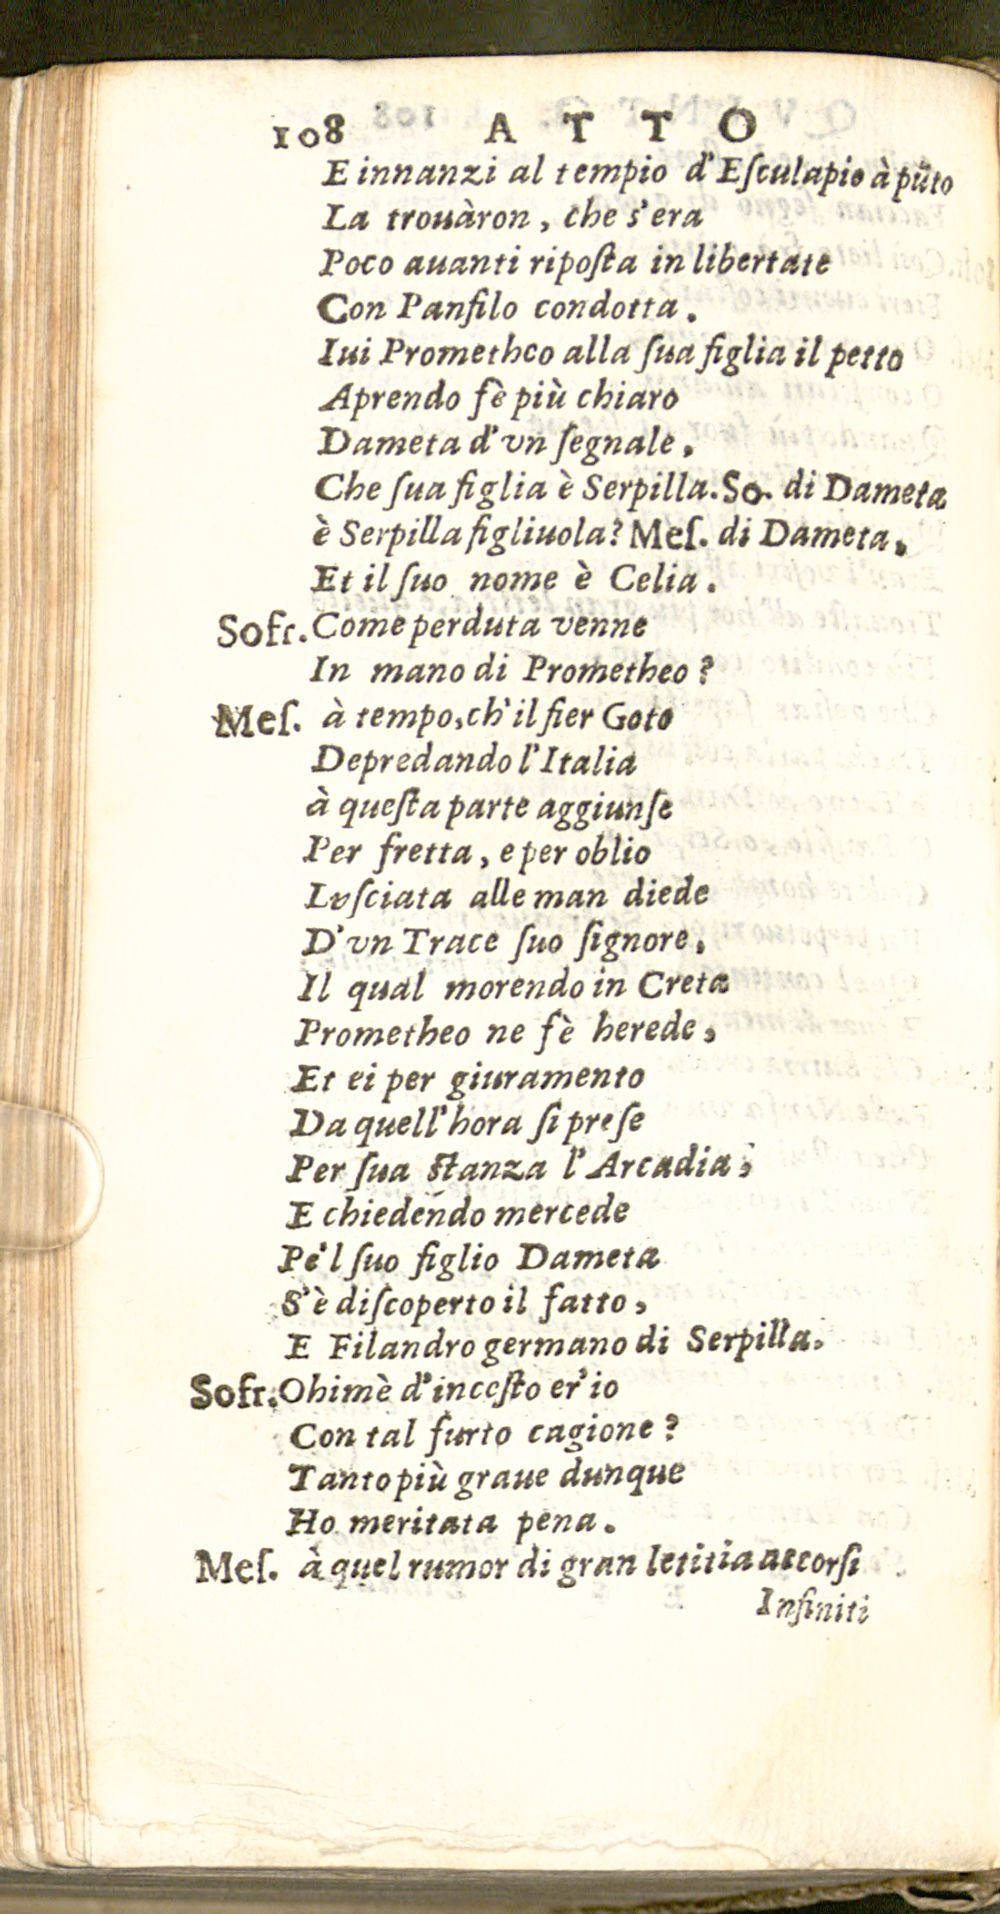 108 ATTO
E innanzi al tempio d'Eſculapio à pũto
La trouàron, che s'era
Poco auanti ripoſta in libertate
Con Panfilo condotta.
Iui Prometheo alla ſua figlia il petto
Aprendo fè più chiaro
Dameta d'vn ſegnale,
Che ſua figlia è Serpilla. So. di Dameta
è Serpilla figliuola? Meſ. di Dameta,
Et il ſuo nome è Celia.
Sofr. Come perduta venne
In mano di Prometheo?
Meſ. à tempo, ch'il fier Goto
Depredando l'Italia
à queſta parte aggiunſe
Per fretta, e per oblio
Lvſciata alle man diede
D'vn Trace ſuo ſignore,
Il qual morendo in Creta
Prometheo ne fè herede,
Et ei per giuramento
Da quell'hora ſi preſe
Per ſua ſtanza l'Arcadia,
E chiedendo mercede
Pe'l ſuo figlio Dameta
S'è diſcoperto il fatto,
E Filandro germano di Serpilla.
Sofr. Ohimè d'inceſto er'io
Con tal furto cagione?
Tanto più graue dunque
Ho meritata pena.
Meſ. à quel rumor di gran letitia accorſi
Infiniti